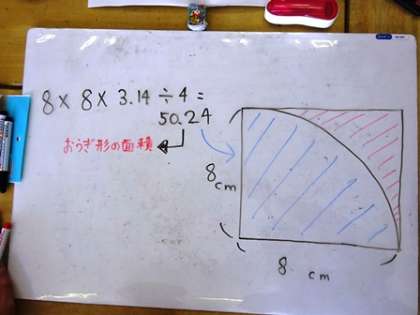 8 × 8 × 3.14 ÷ 4 =
50.24
おうぎ形の面積
8 cm
8 cm